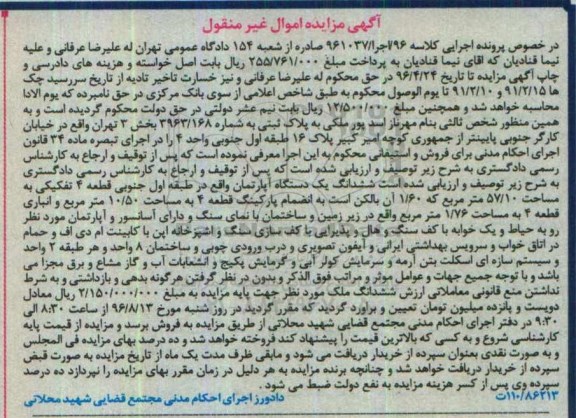 آگهی مزایده اموال غیر منقول
در خصوص پرونده اجرایی کلاسه ۹۶/اجرا/۹۶۱۰۳۷ صادره از شعبه ۱۵۴ دادگاه عمومی تهران له علیرضا عرفانی و علیه
نیما قنادیان که اقای نیما قنادیان به پرداخت مبلغ ۲۵۵/۷۶۱/۰۰۰ ریال بابت اصل خواسته و هزینه های دادرسی و
چاپ آگهی مزایده تا تاریخ ۹۶/۴/۲۴ در حق محکوم له علیرضا عرفانی و نیز خسارت تاخیر تادیه از تاریخ سررسید چک
ها ۹۱/۲/۱۵ و ۹۱/۲/۱۰ تا یوم الوصول محکوم به طبق شاخص اعلامی از سوی بانک مرکزی در حق نامبرده که یوم الادا
محاسبه خواهد شد و همچنین مبلغ ۱۲/۵۰۰/۰۰۰ ریال بابت نیم عشر دولتی در حق دولت محکوم گردیده است و به
همین منظور شخص ثالثی بنام مهرناز اسد پور ملکی به پلاک ثبتی به شماره ۳۹۶۳/۱۶۸ بخش ۳ تهران واقع در خیابان
کارگر جنوبی پایینتر از جمهوری کوچه امیر کبیر پلاک ۱۶ طبقه اول جنوبی واحد ۴ را در اجرای تبصره ماده ۳۴ قانون
اجرای احکام مدنی برای فروش و استیفائی محکوم به این اجرا معرفی نموده است که پس از توقیف و ارجاع به کارشناس
رسمی دادگستری به شرح زیر توصیف و ارزیابی شده است که پس از توقیف و ارجاع به کارشناس رسمی دادگستری
به شرح زیر توصیف و ارزیابی شده است ششدانگ یک دستگاه آپارتمان واقع در طبقه اول جنوبی قطعه ۴ تفکیکی به
مساحت ۵۷/۱۰ متر مربع که ۱/۶۰ آن بالکن است به انضمام پارکینگ قطعه ۴ به مساحت ۱۰/۵۰ متر مربع و انباری
قطعه ۴ به مساحت ۱/۷۶ متر مربع واقع در زیر زمین و ساختمان با نمای سنگ و دارای آسانسور و آپارتمان مورد نظر
رو به حیاط و یک خوابه با کف سنگ و هال و پذیرایی با کف سازی سنگ و آشپزخانه اپن با کابینت ام دی اف و حمام
در اتاق خواب و سرویس بهداشتی ایرانی و آیفون تصویری و درب ورودی چوبی و ساختمان ۸ واحد و هر طبقه ۲ واحد
و سیستم سازه ای اسکلت بتن آرمه و سرمایش کولر آبی و گرمایش پکیج و انشعابات آب و گاز مشاع و برق مجزا می
باشد و با توجه جمیع جهات و عوامل موثر و مراتب فوق الذکر و بدون در نظر گرفتن هر گونه بدهی و بازداشتی و به شرط
نداشتن منع قانونی معاملاتی ارزش ششدانگ ملک مورد نظر جهت پایه مزایده به مبلغ ۲/۱۵۰/۰۰۰/۰۰۰ ریال معادل
دویست و پانزده میلیون تومان تعیین و برآورد گردید که مقرر گردید در روز شنبه مورخ ۹۶/۸/۱۳ از ساعت ۸:۳۰ الی
۹:۳۰ در دفتر اجرای احکام مدنی مجتمع قضایی شهید محلاتی از طریق مزایده به فروش برسد و مزایده از قیمت پایه
کارشناسی شروع و به کسی که بالاترین قیمت را پیشنهاد کند فروخته خواهد شد و ده درصد بهای مزایده فی المجلس
و به صورت نقدی بعنوان سپرده از خریدار دریافت می شود و مابقی ظرف مدت یک ماه از تاریخ مزایده به صورت قبض
سپرده از خریدار دریافت خواهد شد و چنانچه برنده مزایده به هر دلیل در زمان مقرر بهای مزایده را نپردازد ده درصد
سپرده وی پس از کسر هزینه مزایده به نفع دولت ضبط می شود .
۱۱۰/۸۶۲۱۳ت دادورز اجرای احکام مدنی مجتمع قضایی شهید محلاتی